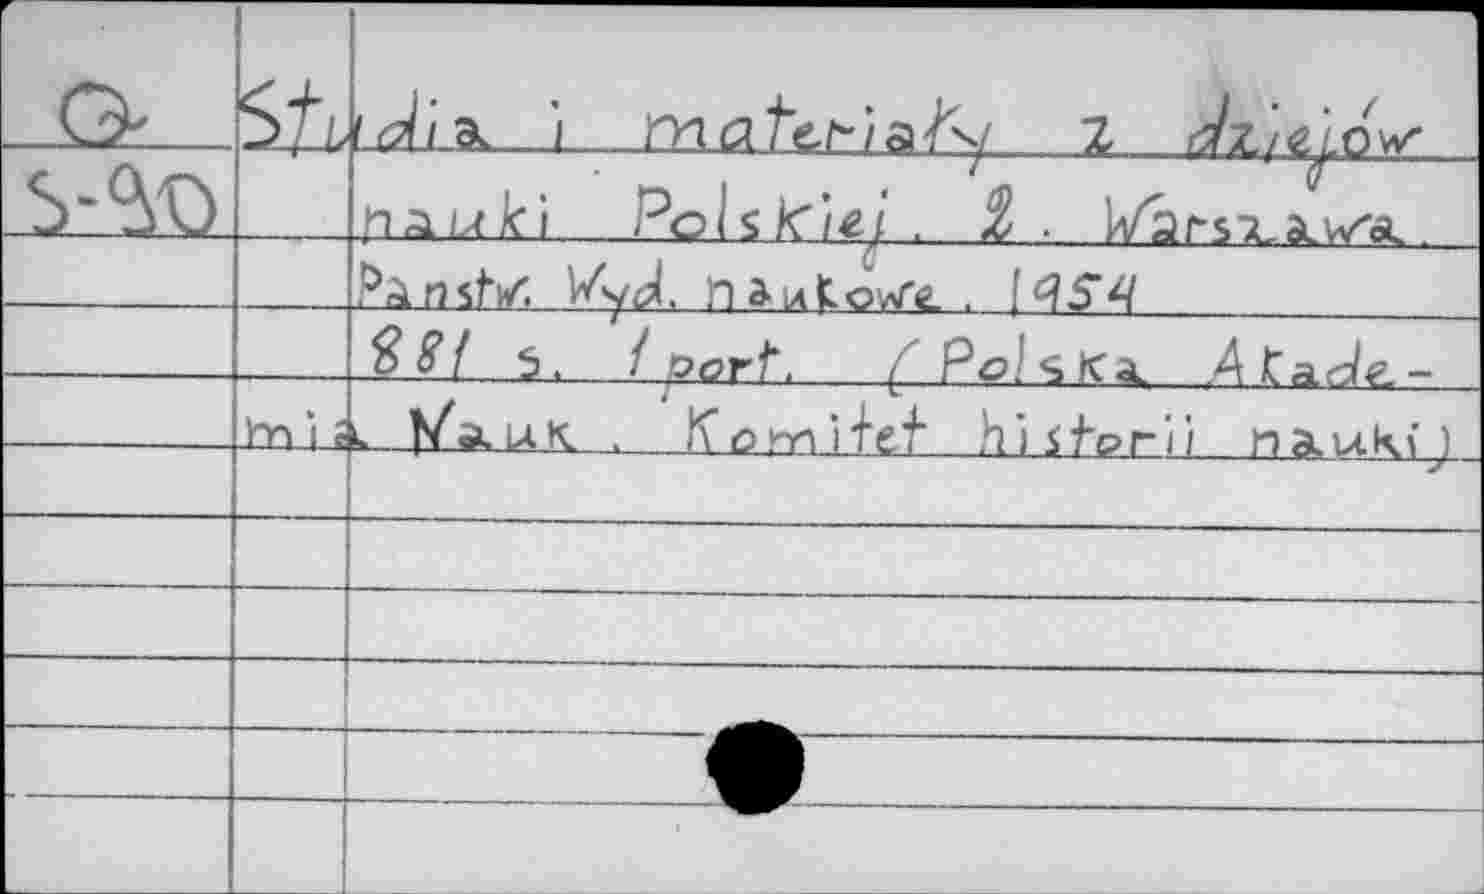 Q Studia i materiały z dziejów
S-90 nauki Polskiej. 2. Warszawa.
Panstw. Wyd. naukowe. 1954
881 s. 1 port. (Polska Akade-
mia Nauk. Komitet historii nauki)